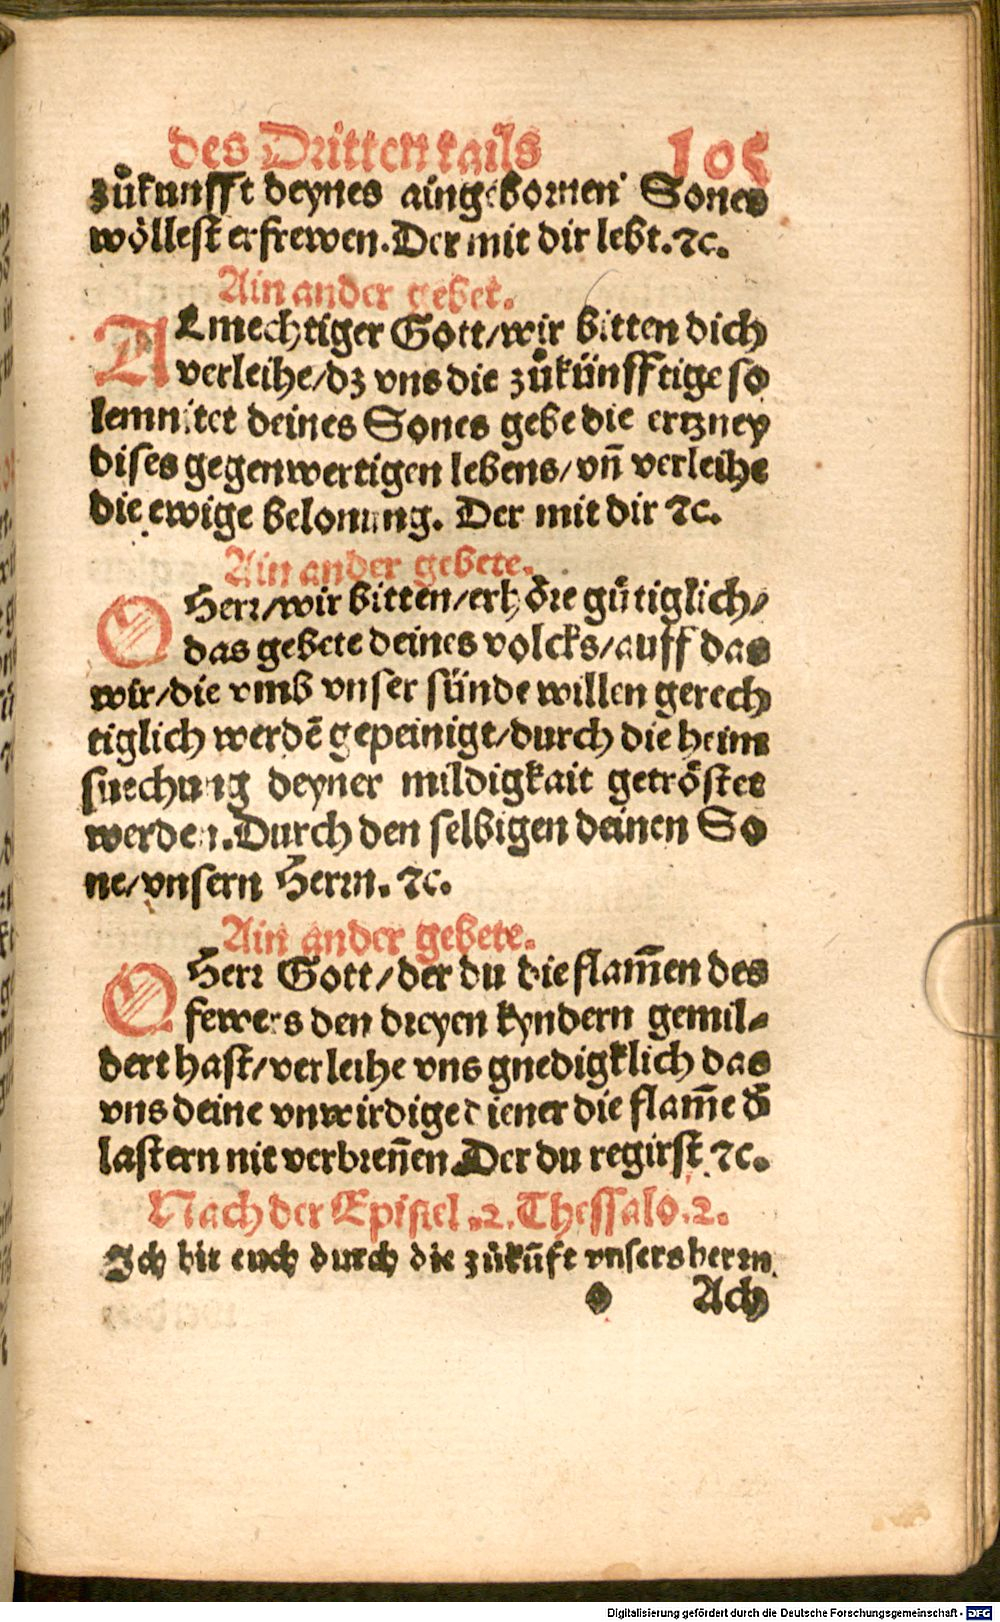 des Dritten tails 105
zůkunfft deynes aingebornen Sones
wöllest erfrewen. Der mit dir lebt. ⁊c.
Ain ander gebet.
ALmechtiger Gott/wir bitten dich
verleihe/dz vns die zůkünfftige so
lemnitet deines Sones gebe die ertzney
dises gegenwertigen lebens/vñ verleihe
die ewige belonung. Der mit dir ⁊c.
Ain ander gebete.
O Herr/wir bitten/erhöre gütiglich/
das gebete deines volcks/auff das
wir/die vmb vnser sünde willen gerech
tiglich werdē gepeinigt/durch die heim
suechung deyner mildigkait getröstet
werden. Durch den selbigen deinen So
ne/vnsern Herrn. ⁊c.
Ain ander gebete.
O Herr Gott/der du die flam̄en des
fewers den dreyen kyndern gemil-
dert hast/verleihe vns gnedigklich das
vns deine vnwirdige diener die flam̄e d̄
lastern nit verbreñen. Der du regirst ⁊c.
Nach der Epistel .2. Thessalo. 2.
Ich bit euch durch die zůkūft vnsers herrn
Ach
Digitalisierung gefördert durch die Deutsche Forschungsgemeinschaft - DFG